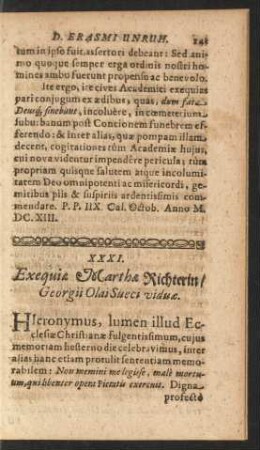 D. ERASMI UNRUH. 141
tum in ipso fuit assertori debeant: Sed ani-
mo quoque semper erga ordinis nostri ho-
mines ambo fuerunt propenso ac benevolo.
Ite ergo, ite cives Academici exequias
pari conjugum ex ædibus, quas, dum fata
Deusq́; sinebant, incoluêre, in cœmeterium
suburbanum post Concionem funebrem ef-
ferendo: & inter alias, quæ pompam illam
decent, cogitationes tùm Academiæ hujus,
cui nova videntur impendêre pericula; tùm
propriam quisque salutem atque incolumi-
tatem Deo omnipotenti ac misericordi, ge-
mitibus piis & suspiriis ardentissimis com-
mendare. P. P. IIX Cal. Octob. Anno M.
DC. XIII.
XXXI.
Exequiæ Marthæ Richterin/
Georgii Olai Sueci viduæ.
HIeronymus, lumen illud Ec-
clesiæ Christianæ fulgentissimum, cujus
memoriam hesterno die celebravimus, inter
alias hanc etiam protulit sententiam memo-
rabilem: Non memini me legisse, malè mortu-
um, qui libenter opera Pietatis exercuit. Digna
profectò